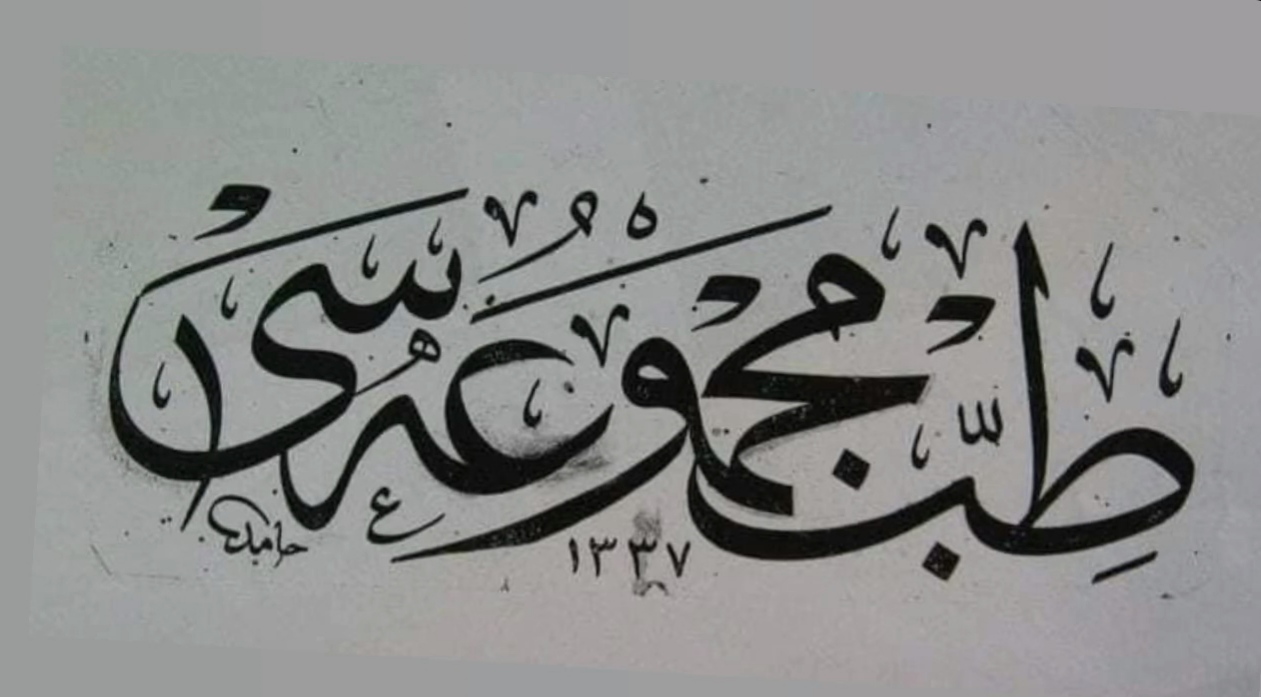 طبّ مجموعه سی
حامد ١٣٣٧